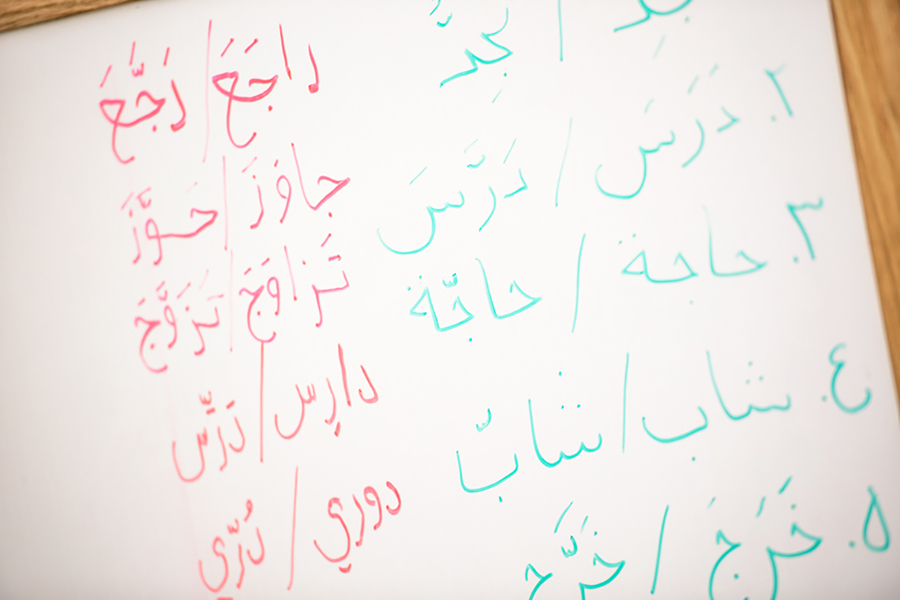 ٢. دَرَسَ / دَرَّسَ
٣. حاجة / حاجّة
٤. شاب / شابّ
٥. خَرَجَ / خَرَّج
راجَعَ / رَجَّعَ
جاوَزَ / جَوَّزَ
تَزاوَجَ / تَزَوَّجَ
دارِس / دَرَّس
دوري / دُرّي